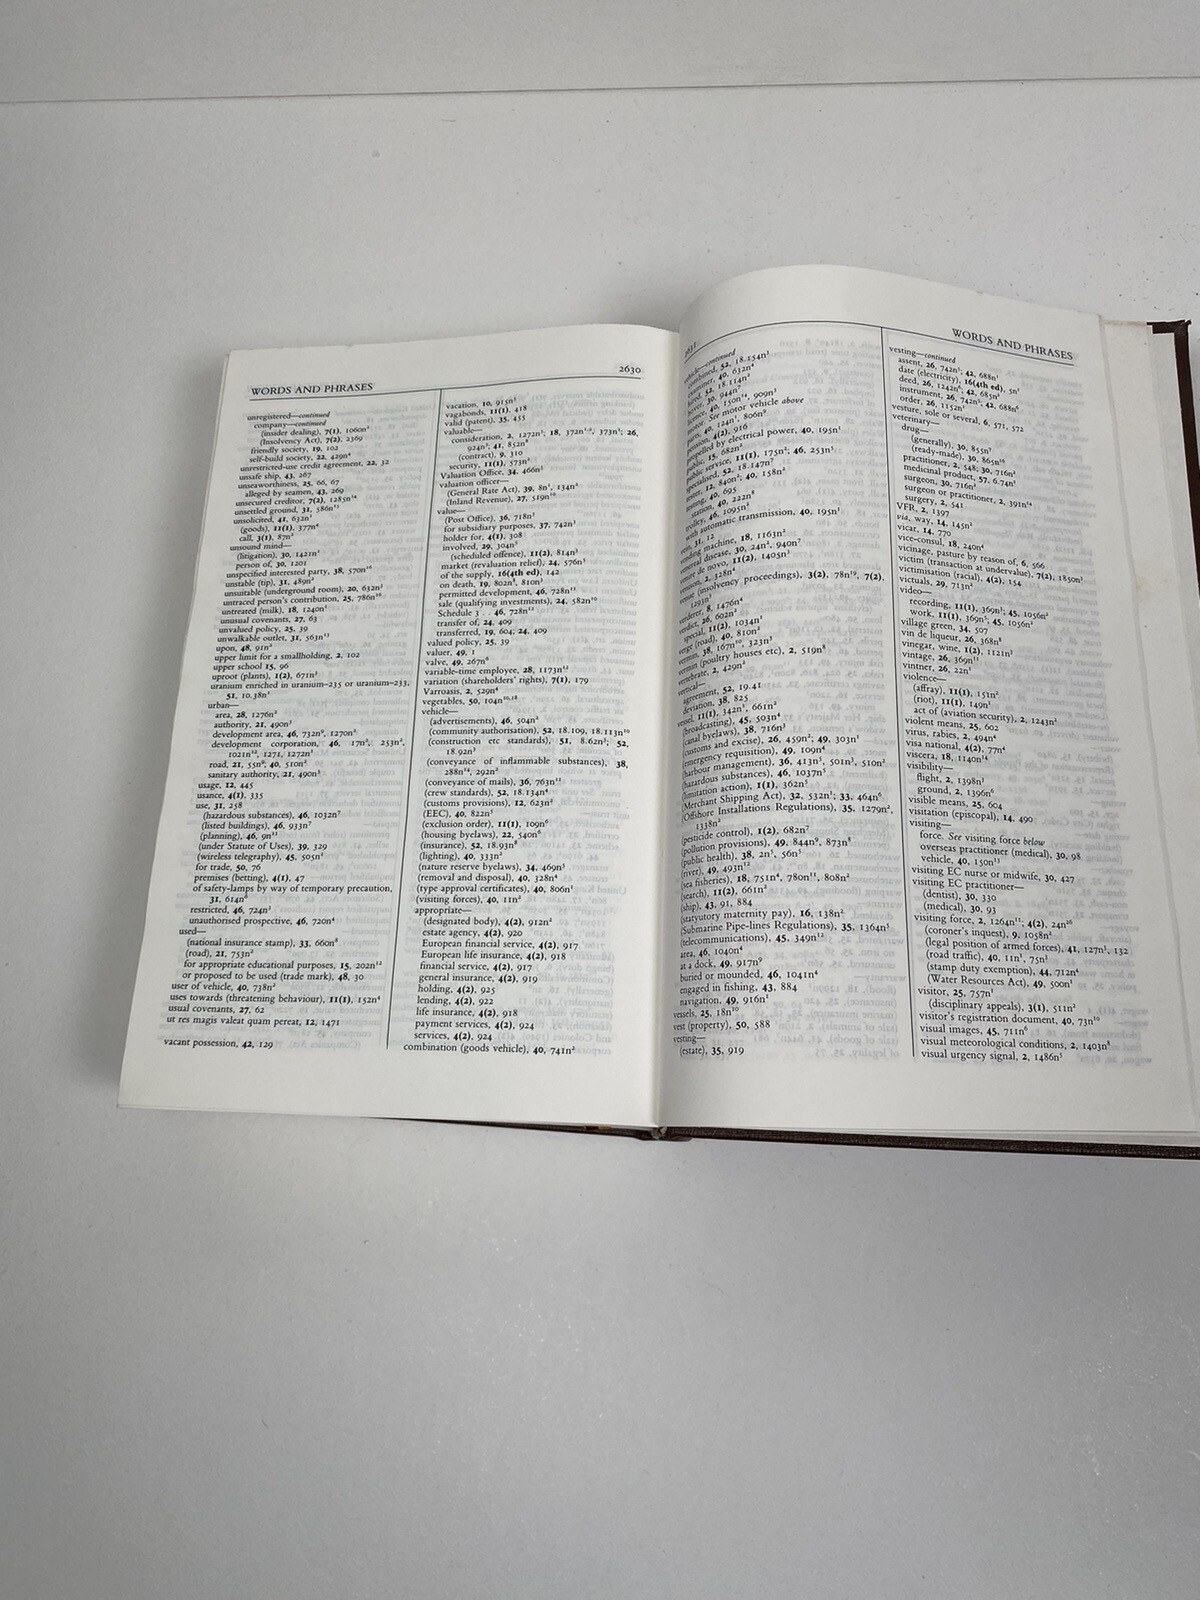 WORDS AND PHRASES
2630
unregistered—continued
company—continued
(insider dealing), 7(1), 1060n²
(Insolvency Act), 7(2), 2369
friendly society, 19, 102
self-build society, 22, 429n⁴
unrestricted-use credit agreement, 22, 32
unsafe ship, 43, 267
unseaworthiness, 25, 66, 67
alleged by seamen, 43, 269
unsecured creditor, 7(2), 1285n¹⁴
unsettled ground, 31, 586n¹³
unsolicited, 41, 632n¹
(goods), 11(1), 377n⁴
call, 3(1), 87n²
unsound mind—
(litigation), 30, 1421n¹
person of, 30, 1201
unspecified interested party, 38, 570n¹⁶
unstable (tip), 31, 489n²
unsuitable (underground room), 20, 632n¹
untraced person's contribution, 25, 786n¹⁰
untreated (milk), 18, 1240n¹
unusual covenants, 27, 63
unvalued policy, 25, 39
unwalkable outlet, 31, 563n¹³
upon, 48, 91n²
upper limit for a smallholding, 2, 102
upper school 15, 96
uproot (plants), 1(2), 671n³
uranium enriched in uranium–235 or uranium–233,
51, 10.38n¹
urban—
area, 28, 1276n²
authority, 21, 490n³
development area, 46, 732n⁹, 1270n²
development corporation, 46, 17n², 253n²,
1021n¹², 1271, 1272n¹
road, 21, 55n⁹; 40, 510n²
sanitary authority, 21, 490n³
usage, 12, 445
usance, 4(1), 335
use, 31, 258
(hazardous substances), 46, 1032n⁷
(listed buildings), 46, 933n⁷
(planning), 46, 9n¹¹
(under Statute of Uses), 39, 329
(wireless telegraphy), 45, 505n¹
for trade, 50, 76
premises (betting), 4(1), 47
of safety-lamps by way of temporary precaution,
31, 614n⁸
restricted, 46, 724n³
unauthorised prospective, 46, 720n⁴
used—
(national insurance stamp), 33, 660n⁸
(road), 21, 753n²
for appropriate educational purposes, 15, 202n¹²
or proposed to be used (trade mark), 48, 30
user of vehicle, 40, 738n²
uses towards (threatening behaviour), 11(1), 152n⁴
usual covenants, 27, 62
ut res magis valeat quam pereat, 12, 1471
vacant possession, 42, 129
vacation, 10, 915n³
vagabonds, 11(1), 418
valid (patent), 35, 455
valuable—
consideration, 2, 1272n³; 18, 372n¹,², 373n³; 26,
924n³; 41, 852n⁸
(contract), 9, 310
security, 11(1), 573n³
Valuation Office, 34, 466n³
valuation officer—
(General Rate Act), 39, 8n¹, 134n²
(Inland Revenue), 27, 519n¹⁰
value—
(Post Office), 36, 718n³
for subsidiary purposes, 37, 742n¹
holder for, 4(1), 308
involved, 29, 304n³
(scheduled offence), 11(2), 814n³
market (revaluation relief), 24, 576n³
of the supply, 16(4th ed), 142
on death, 19, 802n⁸, 810n³
permitted development, 46, 728n¹³
sale (qualifying investments), 24, 582n¹⁰
Schedule 3 . . 46, 728n¹³
transfer of, 24, 409
transferred, 19, 604; 24, 409
valued policy, 25, 39
valuer, 49, 1
valve, 49, 267n⁶
variable-time employee, 28, 1173n¹²
variation (shareholders' rights), 7(1), 179
Varroasis, 2, 529n⁴
vegetables, 50, 104n¹⁰,¹⁸
vehicle—
(advertisements), 46, 504n²
(community authorisation), 52, 18.109, 18.113n¹⁰
(construction etc standards), 51, 8.62n³; 52,
18.92n³
(conveyance of inflammable substances), 38,
288n¹⁴, 292n²
(conveyance of mails), 36, 763n¹¹
(crew standards), 52, 18.134n⁴
(customs provisions), 12, 623n²
(EEC), 40, 822n³
(exclusion order), 11(1), 109n⁶
(housing byelaws), 22, 540n⁶
(insurance), 52, 18.93n⁸
(lighting), 40, 333n²
(nature reserve byelaws), 34, 469n³
(removal and disposal), 40, 328n⁴
(type approval certificates), 40, 806n³
(visiting forces), 40, 11n²
appropriate—
(designated body), 4(2), 912n²
estate agency, 4(2), 920
European financial service, 4(2), 917
European life insurance, 4(2), 918
financial service, 4(2), 917
general insurance, 4(2), 919
holding, 4(2), 925
lending, 4(2), 922
life insurance, 4(2), 918
payment services, 4(2), 924
services, 4(2), 924
combination (goods vehicle), 40, 741n²
WORDS AND PHRASES
combined, 52, 18.154n³
40, 632n⁴
52, 18.114n²
30, 944n³
40, 150n¹⁴, 909n³
See motor vehicle above
40, 124n³, 806n⁹
4(2), 916
by electrical power, 40, 195n³
15, 682n²
service, 11(1), 175n²; 46, 253n³
52, 18.147n⁷
12, 840n²; 40, 158n²
40, 695
station, 40, 222n⁸
46, 1095n³
with automatic transmission, 40, 195n³
31, 12
machine, 18, 1163n²
disease, 30, 24n², 940n⁷
de novo, 11(2), 1405n³
2, 328n⁴
(insolvency proceedings), 3(2), 78n¹⁹, 7(2),
1293n³
verderer, 8, 1476n⁴
verdict, 26, 602n²
special, 11(2), 1034n¹
verge (road), 40, 810n²
vermin, 38, 167n¹⁰, 323n³
vermin (poultry houses etc), 2, 519n⁸
vertebrate, 2, 429n²
vertical—
agreement, 52, 19.41
deviation, 38, 825
vessel, 11(1), 342n¹, 661n²
(broadcasting), 45, 503n⁴
(canal byelaws), 38, 716n³
(customs and excise), 26, 459n²; 49, 303n¹
(emergency requisition), 49, 109n⁴
(harbour management), 36, 413n⁵, 501n³, 510n²
(hazardous substances), 46, 1037n³
(limitation action), 1(1), 362n⁵
(Merchant Shipping Act), 32, 532n¹; 33, 464n⁶
(Offshore Installations Regulations), 35, 1279n²,
1338n²
(pesticide control), 1(2), 682n⁷
(pollution provisions), 49, 844n⁹, 873n⁸
(public health), 38, 2n⁵, 56n⁵
(river), 49, 493n¹²
(sea fisheries), 18, 751n⁴, 780n¹¹, 808n²
(search), 11(2), 661n²
(ship), 43, 91, 884
(statutory maternity pay), 16, 138n²
(Submarine Pipe-lines Regulations), 35, 1364n⁵
(telecommunications), 45, 349n¹²
area, 46, 1040n⁴
at a dock, 49, 917n⁹
buried or mounded, 46, 1041n⁴
engaged in fishing, 43, 884
navigation, 49, 916n¹
vessels, 25, 18n¹⁰
vest (property), 50, 588
vesting—
(estate), 35, 919
vesting—continued
assent, 26, 742n¹; 42, 688n¹
date (electricity), 16(4th ed), 5n¹
deed, 26, 1242n⁶; 42, 685n²
instrument, 26, 742n¹; 42, 688n⁶
order, 26, 1152n¹
vesture, sole or several, 6, 571, 572
veterinary—
drug—
(generally), 30, 855n⁷
(ready-made), 30, 865n¹⁶
practitioner, 2, 548; 30, 716n²
medicinal product, 57, 6.74n¹
surgeon, 30, 716n²
surgeon or practitioner, 2, 391n¹⁴
surgery, 2, 541
VFR, 2, 1397
via, way, 14, 145n³
vicar, 14, 770
vice-consul, 18, 240n⁴
vicinage, pasture by reason of, 6, 566
victim (transaction at undervalue), 7(2), 1850n³
victimisation (racial), 4(2), 154
victuals, 29, 713n²
video—
recording, 11(1), 369n³; 45, 1056n²
work, 11(1), 369n³; 45, 1056n²
village green, 34, 507
vin de liqueur, 26, 368n⁴
vinegar, wine, 1(2), 1121n³
vintage, 26, 369n¹¹
vintner, 26, 22n¹
violence—
(affray), 11(1), 151n²
(riot), 11(1), 149n¹
act of (aviation security), 2, 1243n²
violent means, 25, 602
virus, rabies, 2, 494n⁴
visa national, 4(2), 77n⁴
viscera, 18, 1140n¹⁴
visibility—
flight, 2, 1398n³
ground, 2, 1396n⁶
visible means, 25, 604
visitation (episcopal), 14, 490
visiting—
force. See visiting force below
overseas practitioner (medical), 30, 98
vehicle, 40, 150n¹³
visiting EC nurse or midwife, 30, 427
visiting EC practitioner—
(dentist), 30, 330
(medical), 30, 93
visiting force, 2, 1264n¹¹; 4(2), 24n²⁶
(coroner's inquest), 9, 1058n²
(legal position of armed forces), 41, 127n³, 132
(road traffic), 40, 11n¹, 75n³
(stamp duty exemption), 44, 712n⁴
(Water Resources Act), 49, 500n¹
visitor, 25, 757n¹
(disciplinary appeals), 3(1), 511n²
visitor's registration document, 40, 73n¹⁰
visual images, 45, 711n⁶
visual meteorological conditions, 2, 1403n⁸
visual urgency signal, 2, 1486n⁵